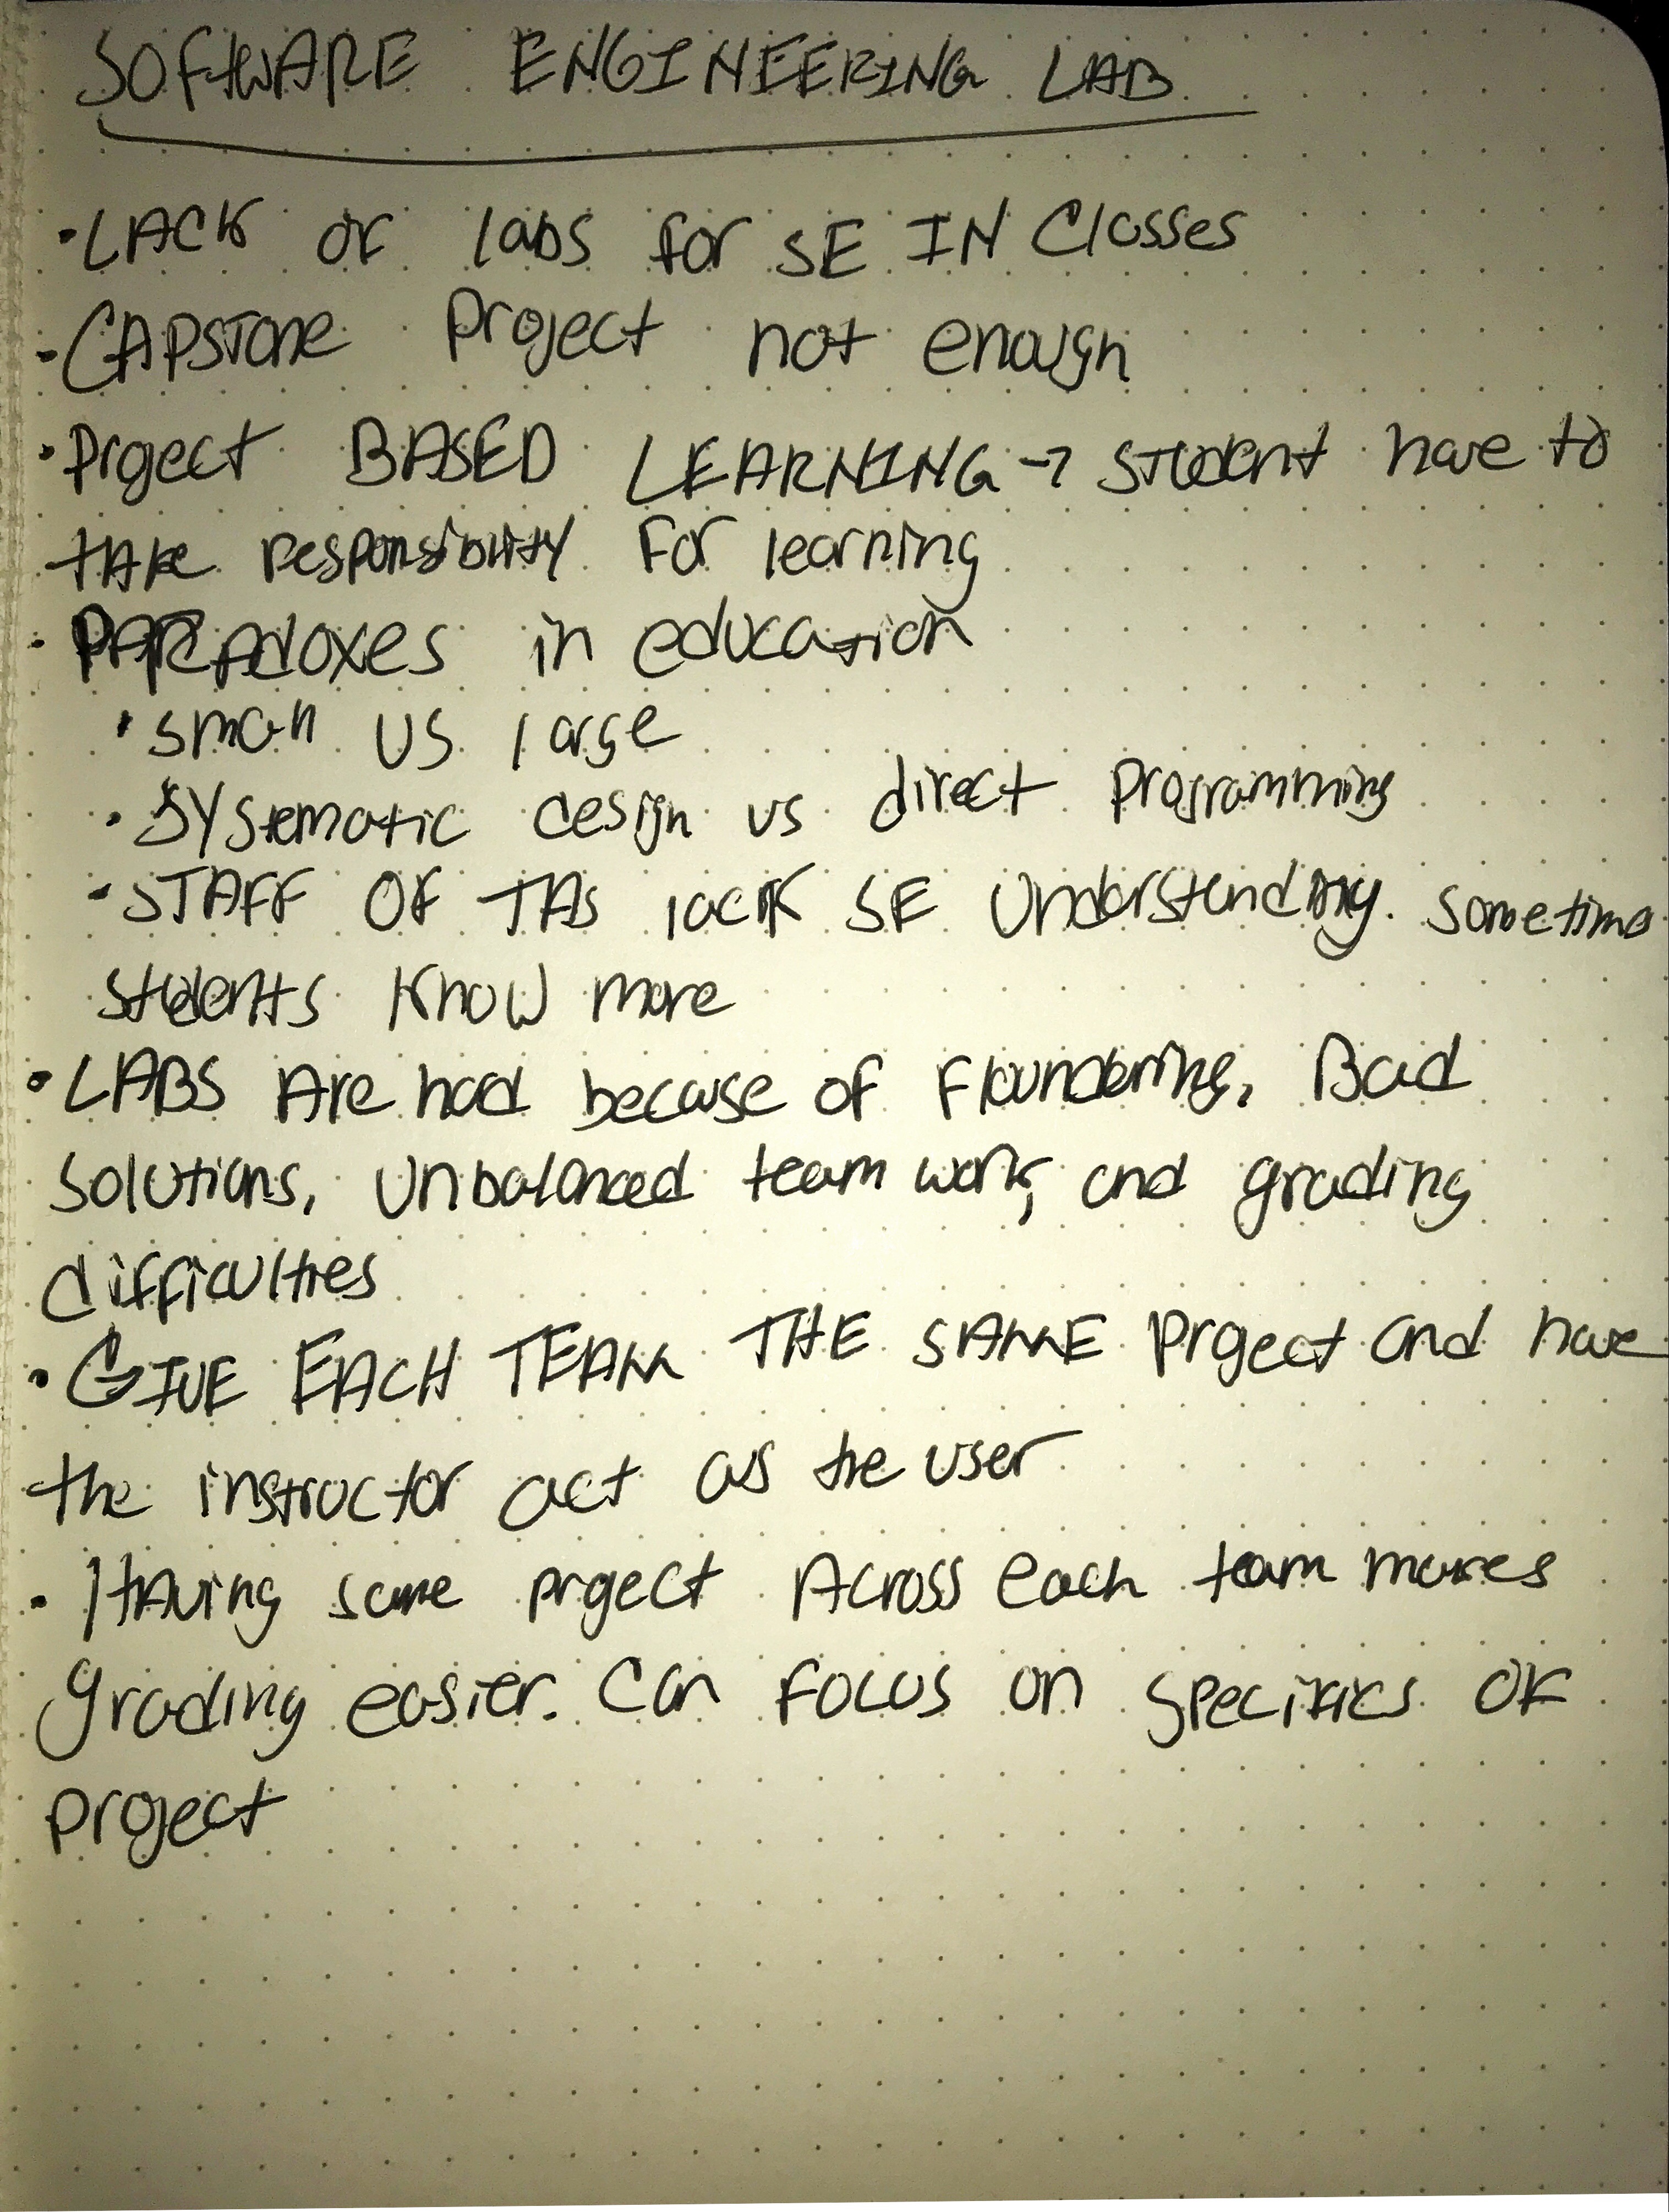 SOFTWARE ENGINEERING LAB
• LACK OF labs for SE IN Classes
• CAPSTONE Project not enough
• Project BASED LEARNING → STUDENT have to
TAKE responsibility For learning
• PARADOXES in education
• small vs large
• Systematic design vs direct Programming
• STAFF OF TAs lack SE Understanding. Sometimes
students Know more
• LABS Are hard because of Floundering, Bad
Solutions, Unbalanced team work, and grading
difficulties
• GIVE EACH TEAM THE SAME Project and have
the instructor act as the user
• Having same project Across each team makes
grading easier. Can Focus on Specifics OF
project